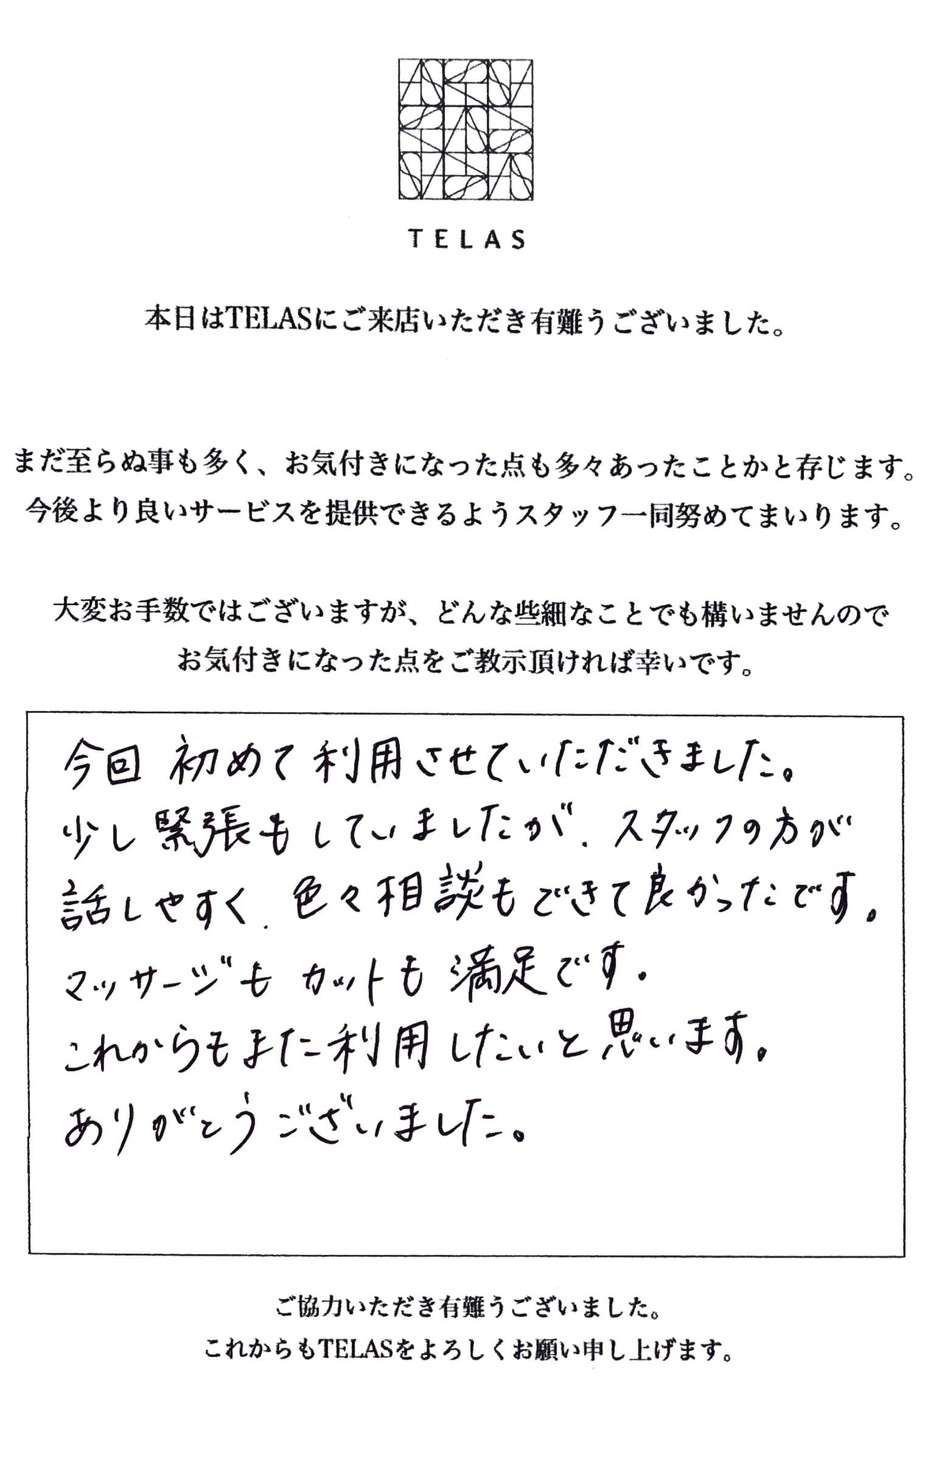 TELAS
本日はTELASにご来店いただき有難うございました。
まだ至らぬ事も多く、お気付きになった点も多々あったことかと存じます。
今後より良いサービスを提供できるようスタッフ一同努めてまいります。
大変お手数ではございますが、どんな些細なことでも構いませんので
お気付きになった点をご教示頂ければ幸いです。
今回 初めて利用させていただきました。
少し緊張もしていましたが、スタッフの方が
話しやすく、色々相談もできて良かったです。
マッサージも カットも 満足です。
これからもまた利用したいと思います。
ありがとうございました。
ご協力いただき有難うございました。
これからもTELASをよろしくお願い申し上げます。